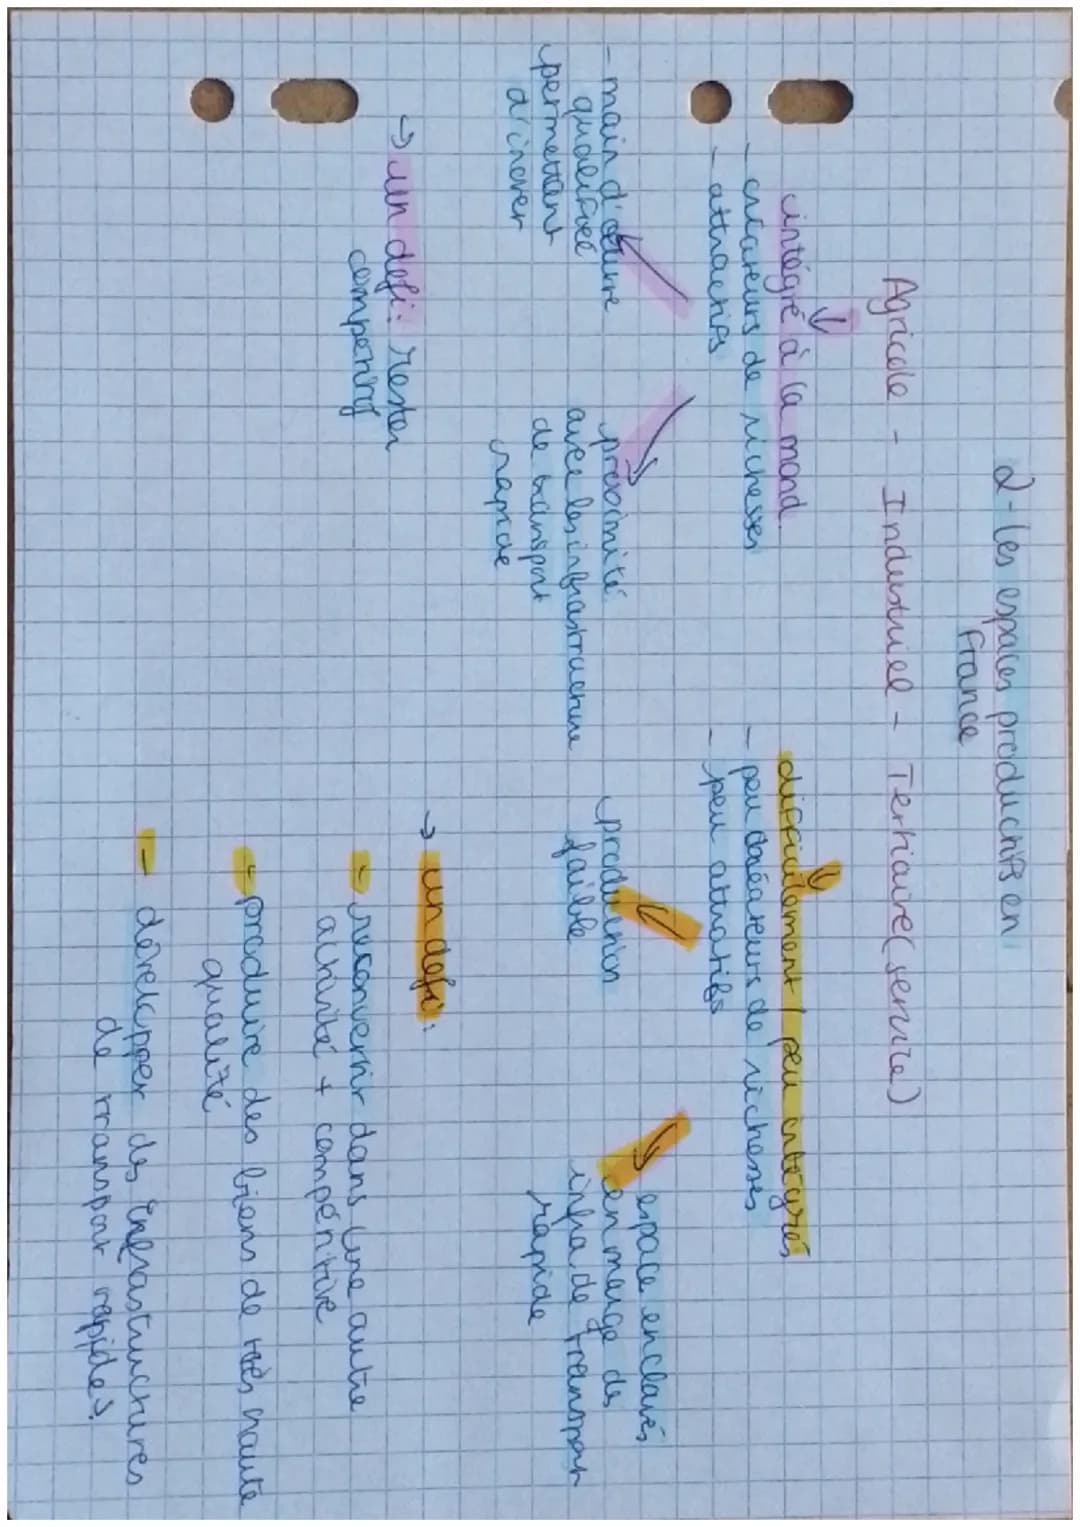 2 - les espaces productifs en
France
Agricole - Industriel - Tertiaire (service)
intégré à la mond.
- créateurs de richesses
- attractifs
- main d'œuvre
qualifiée
permettent
d'inover
proximité
avec les infrastructure
de transport
rapide
→ un defi : rester
compétitif
difficilement / peu intégrés
- peu créateurs de richesses
- peu attractifs
production
faible
espace enclavés,
en marge des
infra. de transport
rapide
→ un defi :
- reconvertir dans une autre
activité + compétitive
- produire des biens de très haute
qualité
- développer des infrastructures
de transport rapides.